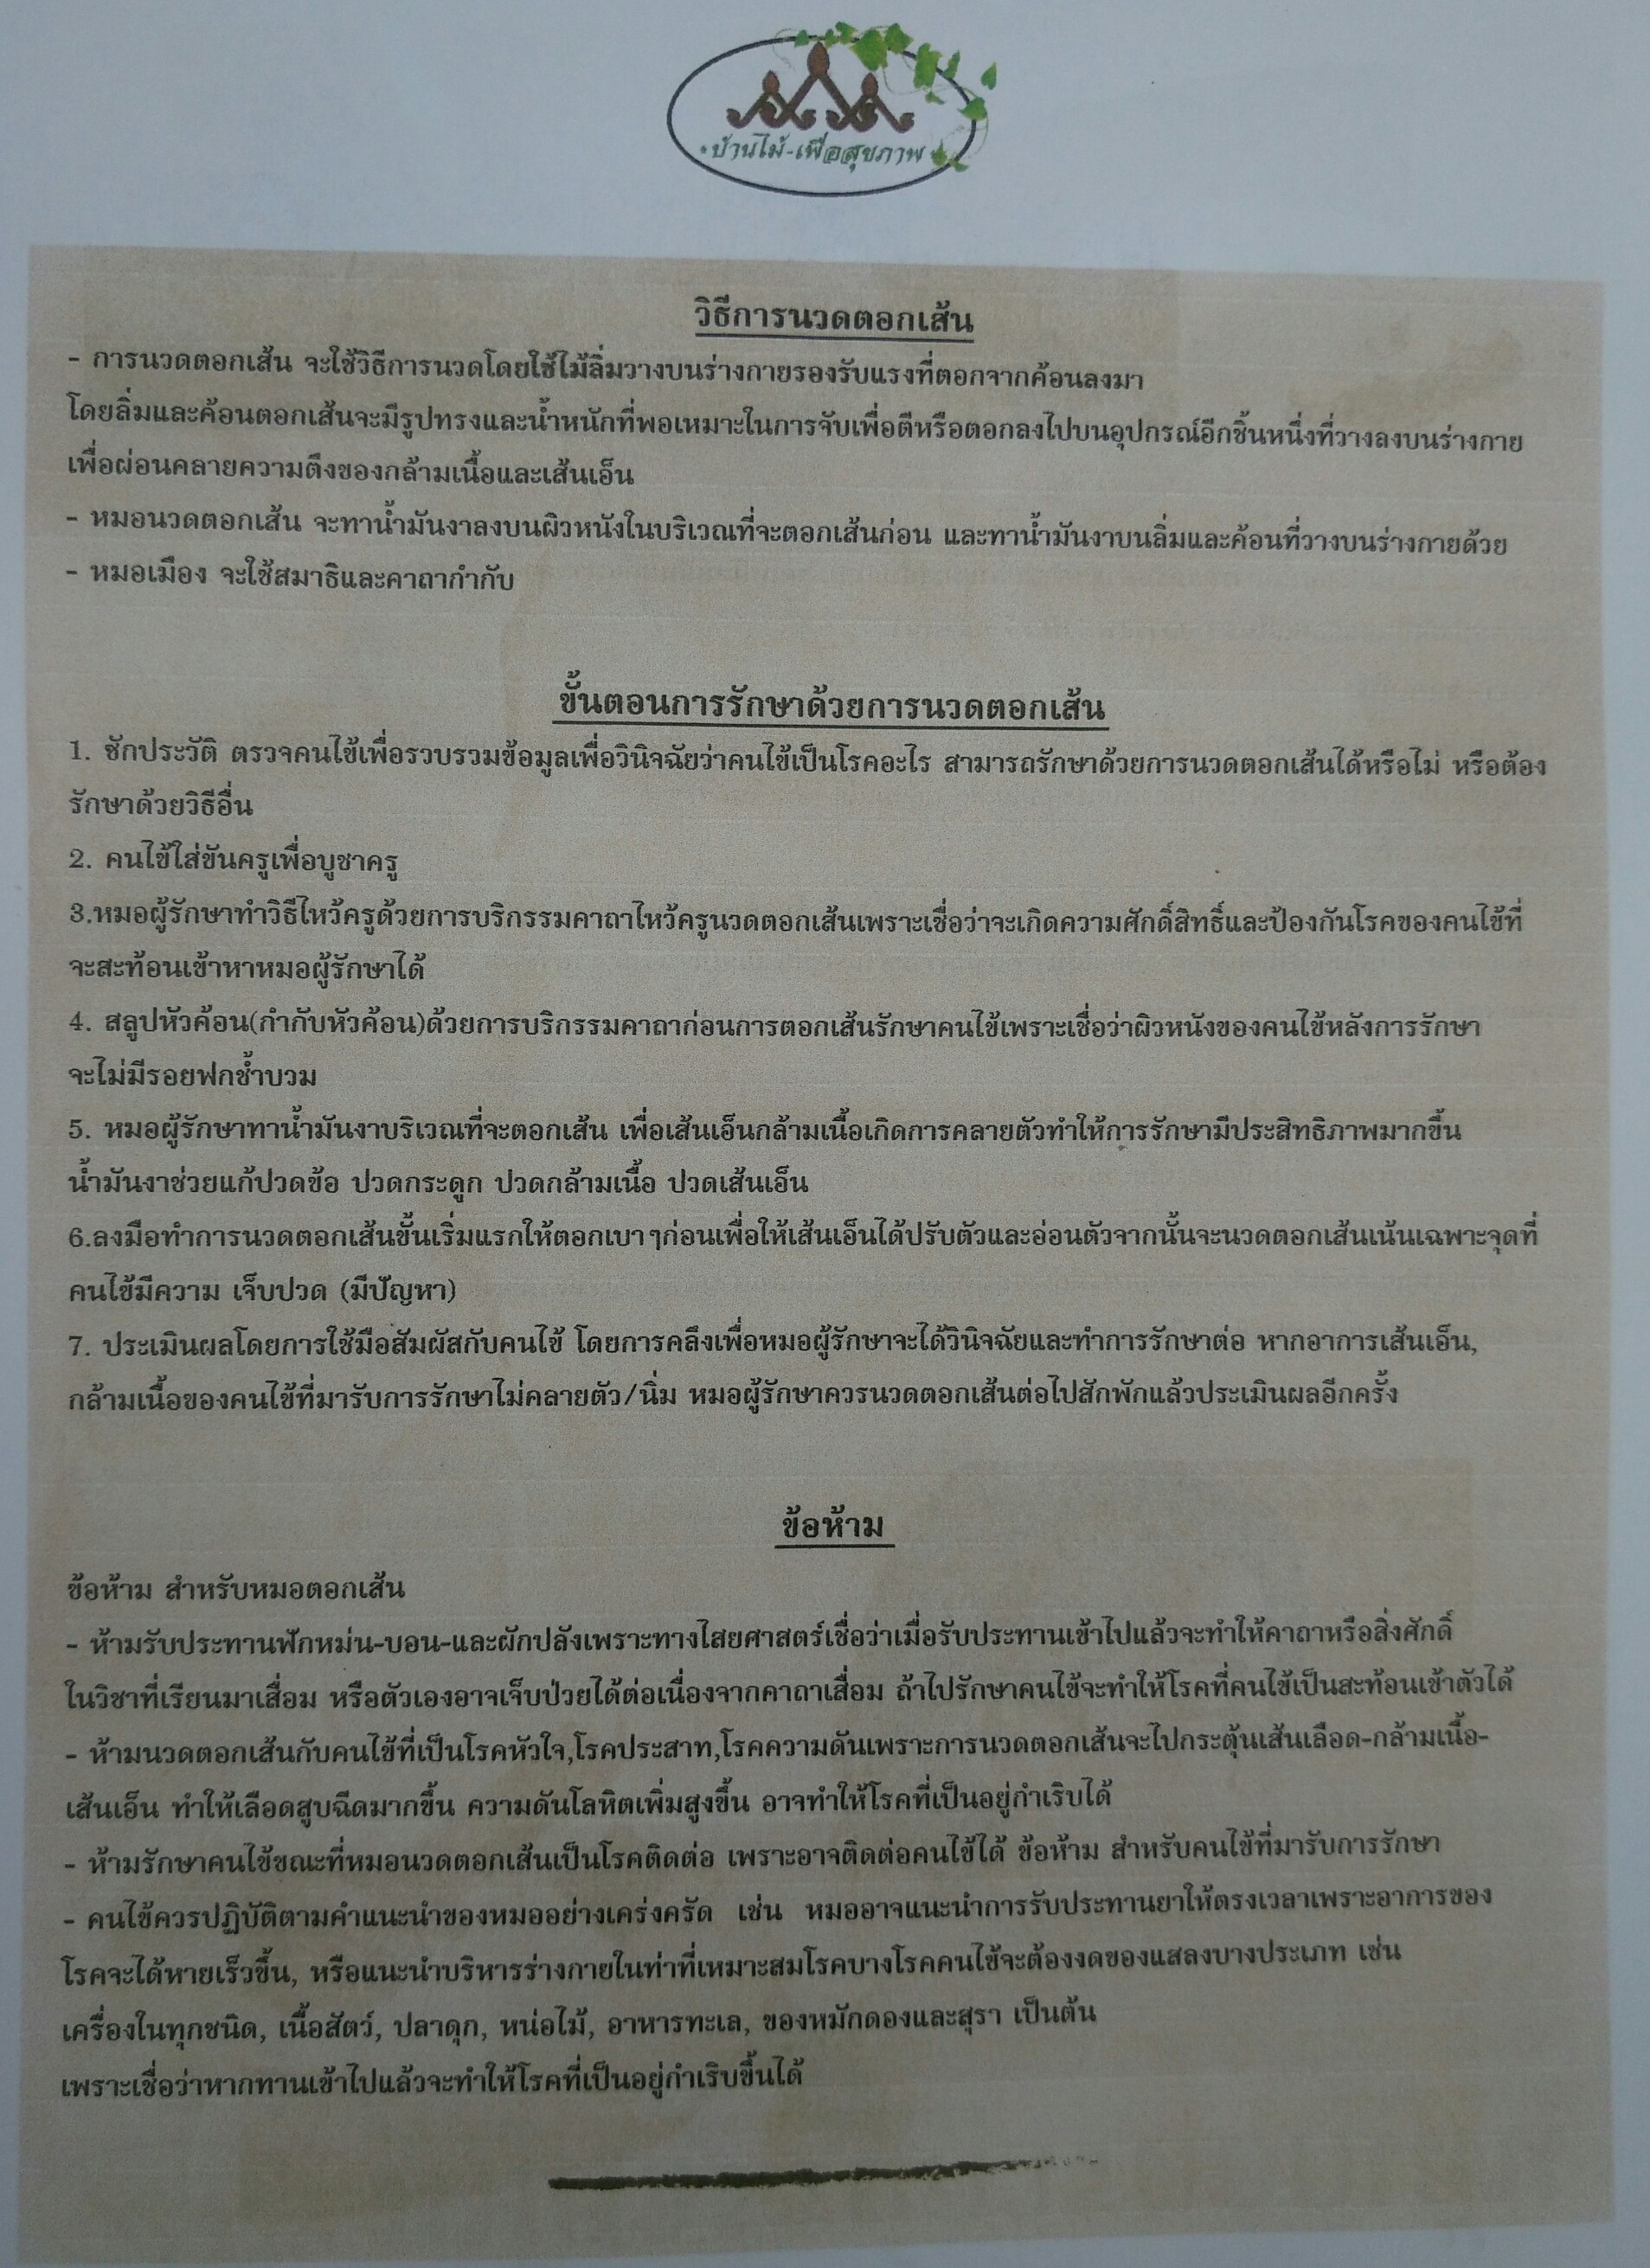 บ้านไม้-เพื่อสุขภาพ
วิธีการนวดตอกเส้น
- การนวดตอกเส้น จะใช้วิธีการนวดโดยใช้ไม้ลิ่มวางบนร่างกายรองรับแรงที่ตอกจากค้อนลงมา
โดยลิ่มและค้อนตอกเส้นจะมีรูปทรงและน้ำหนักที่พอเหมาะในการจับเพื่อตีหรือตอกลงไปบนอุปกรณ์อีกชิ้นหนึ่งที่วางลงบนร่างกาย
เพื่อผ่อนคลายความตึงของกล้ามเนื้อและเส้นเอ็น
- หมอนวดตอกเส้น จะทาน้ำมันงาลงบนผิวหนังในบริเวณที่จะตอกเส้นก่อน และทาน้ำมันงาบนลิ่มและค้อนที่วางบนร่างกายด้วย
- หมอเมือง จะใช้สมาธิและคาถากำกับ
ขั้นตอนการรักษาด้วยการนวดตอกเส้น
1. ซักประวัติ ตรวจคนไข้เพื่อรวบรวมข้อมูลเพื่อวินิจฉัยว่าคนไข้เป็นโรคอะไร สามารถรักษาด้วยการนวดตอกเส้นได้หรือไม่ หรือต้อง
รักษาด้วยวิธีอื่น
2. คนไข้ใส่ขันครูเพื่อบูชาครู
3.หมอผู้รักษาทำวิธีไหว้ครูด้วยการบริกรรมคาถาไหว้ครูนวดตอกเส้นเพราะเชื่อว่าจะเกิดความศักดิ์สิทธิ์และป้องกันโรคของคนไข้ที่
จะสะท้อนเข้าหาหมอผู้รักษาได้
4. สลูปหัวค้อน(กำกับหัวค้อน)ด้วยการบริกรรมคาถาก่อนการตอกเส้นรักษาคนไข้เพราะเชื่อว่าผิวหนังของคนไข้หลังการรักษา
จะไม่มีรอยฟกช้ำบวม
5. หมอผู้รักษาทาน้ำมันงาบริเวณที่จะตอกเส้น เพื่อเส้นเอ็นกล้ามเนื้อเกิดการคลายตัวทำให้การรักษามีประสิทธิภาพมากขึ้น
น้ำมันงาช่วยแก้ปวดข้อ ปวดกระดูก ปวดกล้ามเนื้อ ปวดเส้นเอ็น
6.ลงมือทำการนวดตอกเส้นขั้นเริ่มแรกให้ตอกเบา ๆก่อนเพื่อให้เส้นเอ็นได้ปรับตัวและอ่อนตัวจากนั้นจะนวดตอกเส้นเน้นเฉพาะจุดที่
คนไข้มีความ เจ็บปวด (มีปัญหา)
7. ประเมินผลโดยการใช้มือสัมผัสกับคนไข้ โดยการคลึงเพื่อหมอผู้รักษาจะได้วินิจฉัยและทำการรักษาต่อ หากอาการเส้นเอ็น,
กล้ามเนื้อของคนไข้ที่มารับการรักษาไม่คลายตัว/นิ่ม หมอผู้รักษาควรนวดตอกเส้นต่อไปสักพักแล้วประเมินผลอีกครั้ง
ข้อห้าม
ข้อห้าม สำหรับหมอตอกเส้น
- ห้ามรับประทานฟักหม่น-บอน-และผักปลังเพราะทางไสยศาสตร์เชื่อว่าเมื่อรับประทานเข้าไปแล้วจะทำให้คาถาหรือสิ่งศักดิ์
ในวิชาที่เรียนมาเสื่อม หรือตัวเองอาจเจ็บป่วยได้ต่อเนื่องจากคาถาเสื่อม ถ้าไปรักษาคนไข้จะทำให้โรคที่คนไข้เป็นสะท้อนเข้าตัวได้
- ห้ามนวดตอกเส้นกับคนไข้ที่เป็นโรคหัวใจ,โรคประสาท,โรคความดันเพราะการนวดตอกเส้นจะไปกระตุ้นเส้นเลือด-กล้ามเนื้อ-
เส้นเอ็น ทำให้เลือดสูบฉีดมากขึ้น ความดันโลหิตเพิ่มสูงขึ้น อาจทำให้โรคที่เป็นอยู่กำเริบได้
- ห้ามรักษาคนไข้ขณะที่หมอนวดตอกเส้นเป็นโรคติดต่อ เพราะอาจติดต่อคนไข้ได้ ข้อห้าม สำหรับคนไข้ที่มารับการรักษา
- คนไข้ควรปฏิบัติตามคำแนะนำของหมออย่างเคร่งครัด เช่น หมออาจแนะนำการรับประทานยาให้ตรงเวลาเพราะอาการของ
โรคจะได้หายเร็วขึ้น, หรือแนะนำบริหารร่างกายในท่าที่เหมาะสมโรคบางโรคคนไข้จะต้องงดของแสลงบางประเภท เช่น
เครื่องในทุกชนิด, เนื้อสัตว์, ปลาดุก, หน่อไม้, อาหารทะเล, ของหมักดองและสุรา เป็นต้น
เพราะเชื่อว่าหากทานเข้าไปแล้วจะทำให้โรคที่เป็นอยู่กำเริบขึ้นได้